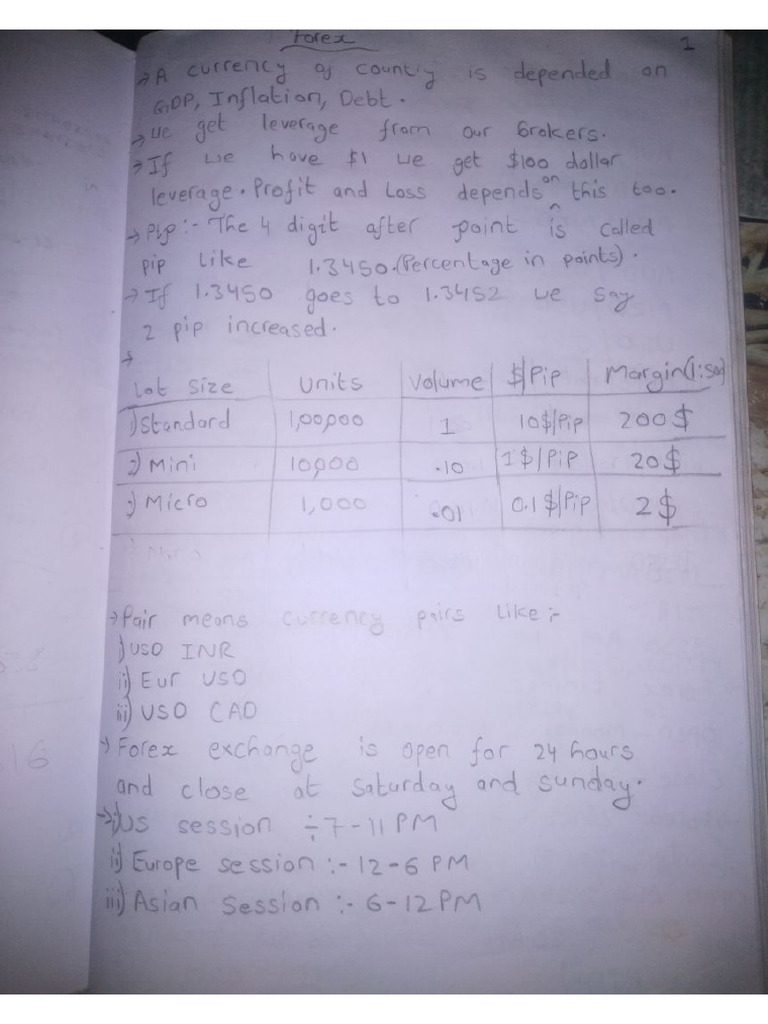 Forex
1
→ A currency of country is depended on
GDP, Inflation, Debt.
→ We get leverage from our brokers.
→ If we have $1 we get $100 dollar
leverage. Profit and Loss depends on this too.
→ Pip :- The 4 digit after point is called
pip like 1.3450. (Percentage in points).
→ If 1.3450 goes to 1.3452 we say
2 pip increased.
→
Lot Size Units Volume $/Pip Margin(1:500)
1) Standard 1,00,000 1 10$/Pip 200$
2) Mini 10,000 .10 1$/Pip 20$
3) Micro 1,000 .01 0.1$/Pip 2$
→ Pair means currency pairs like :-
i) USD INR
ii) Eur USD
iii) USD CAD
→ Forex exchange is open for 24 hours
and close at Saturday and Sunday.
→ i) US session :- 7-11 PM
ii) Europe session :- 12-6 PM
iii) Asian Session :- 6-12 PM